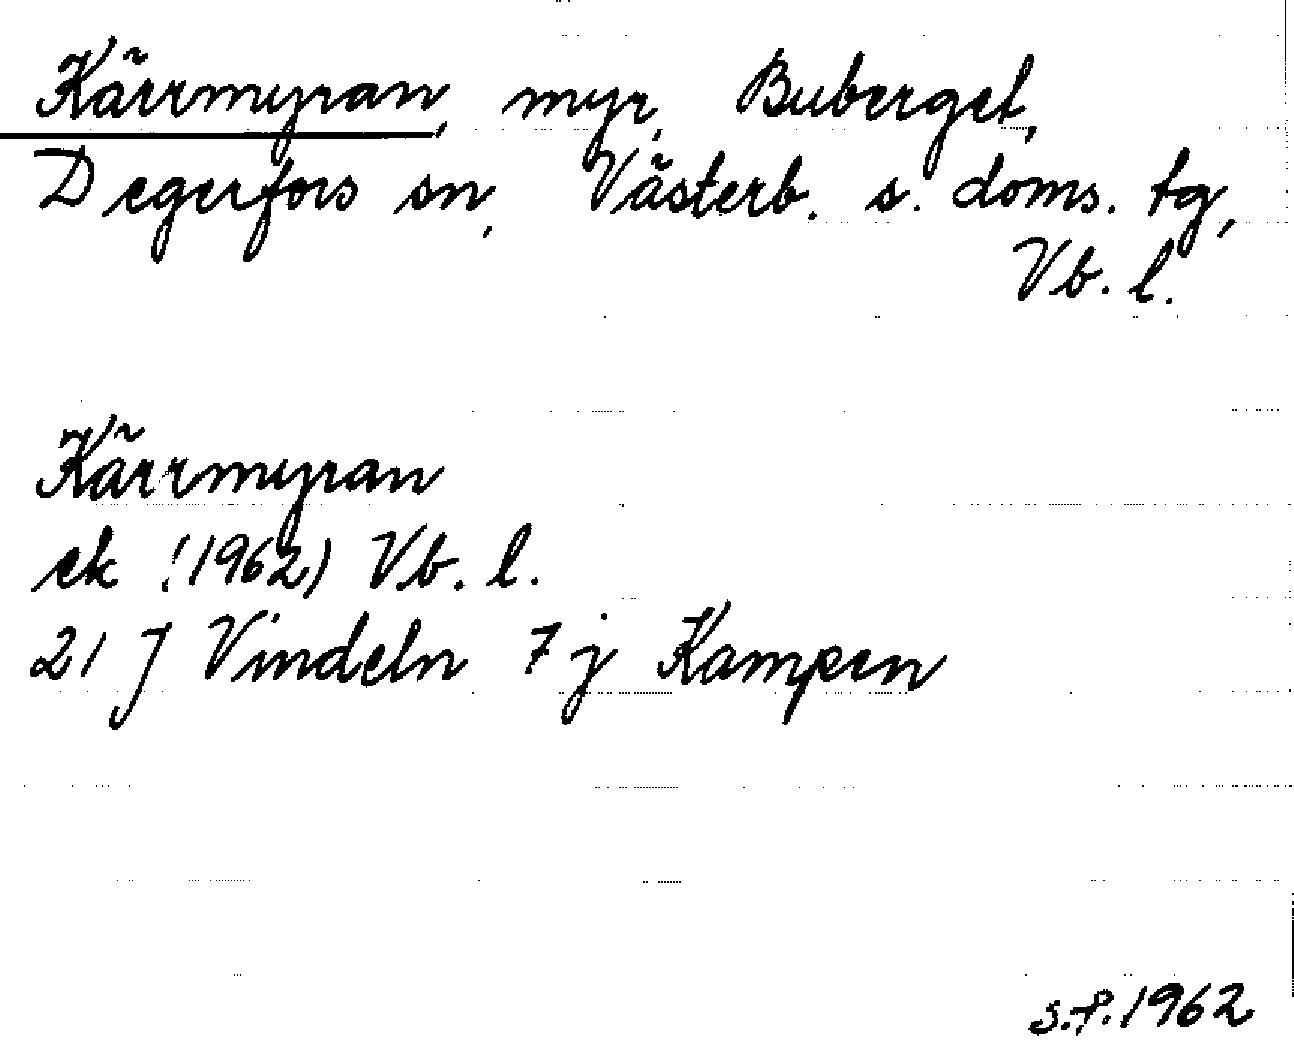 Kärrmyran, myr, Buberget,
Degerfors sn, Västerb. s. doms. tg,
Vb. l.
Kärrmyran
ek (1962) Vb. l.
21 J Vindeln 7 j Kampen
s.f. 1962